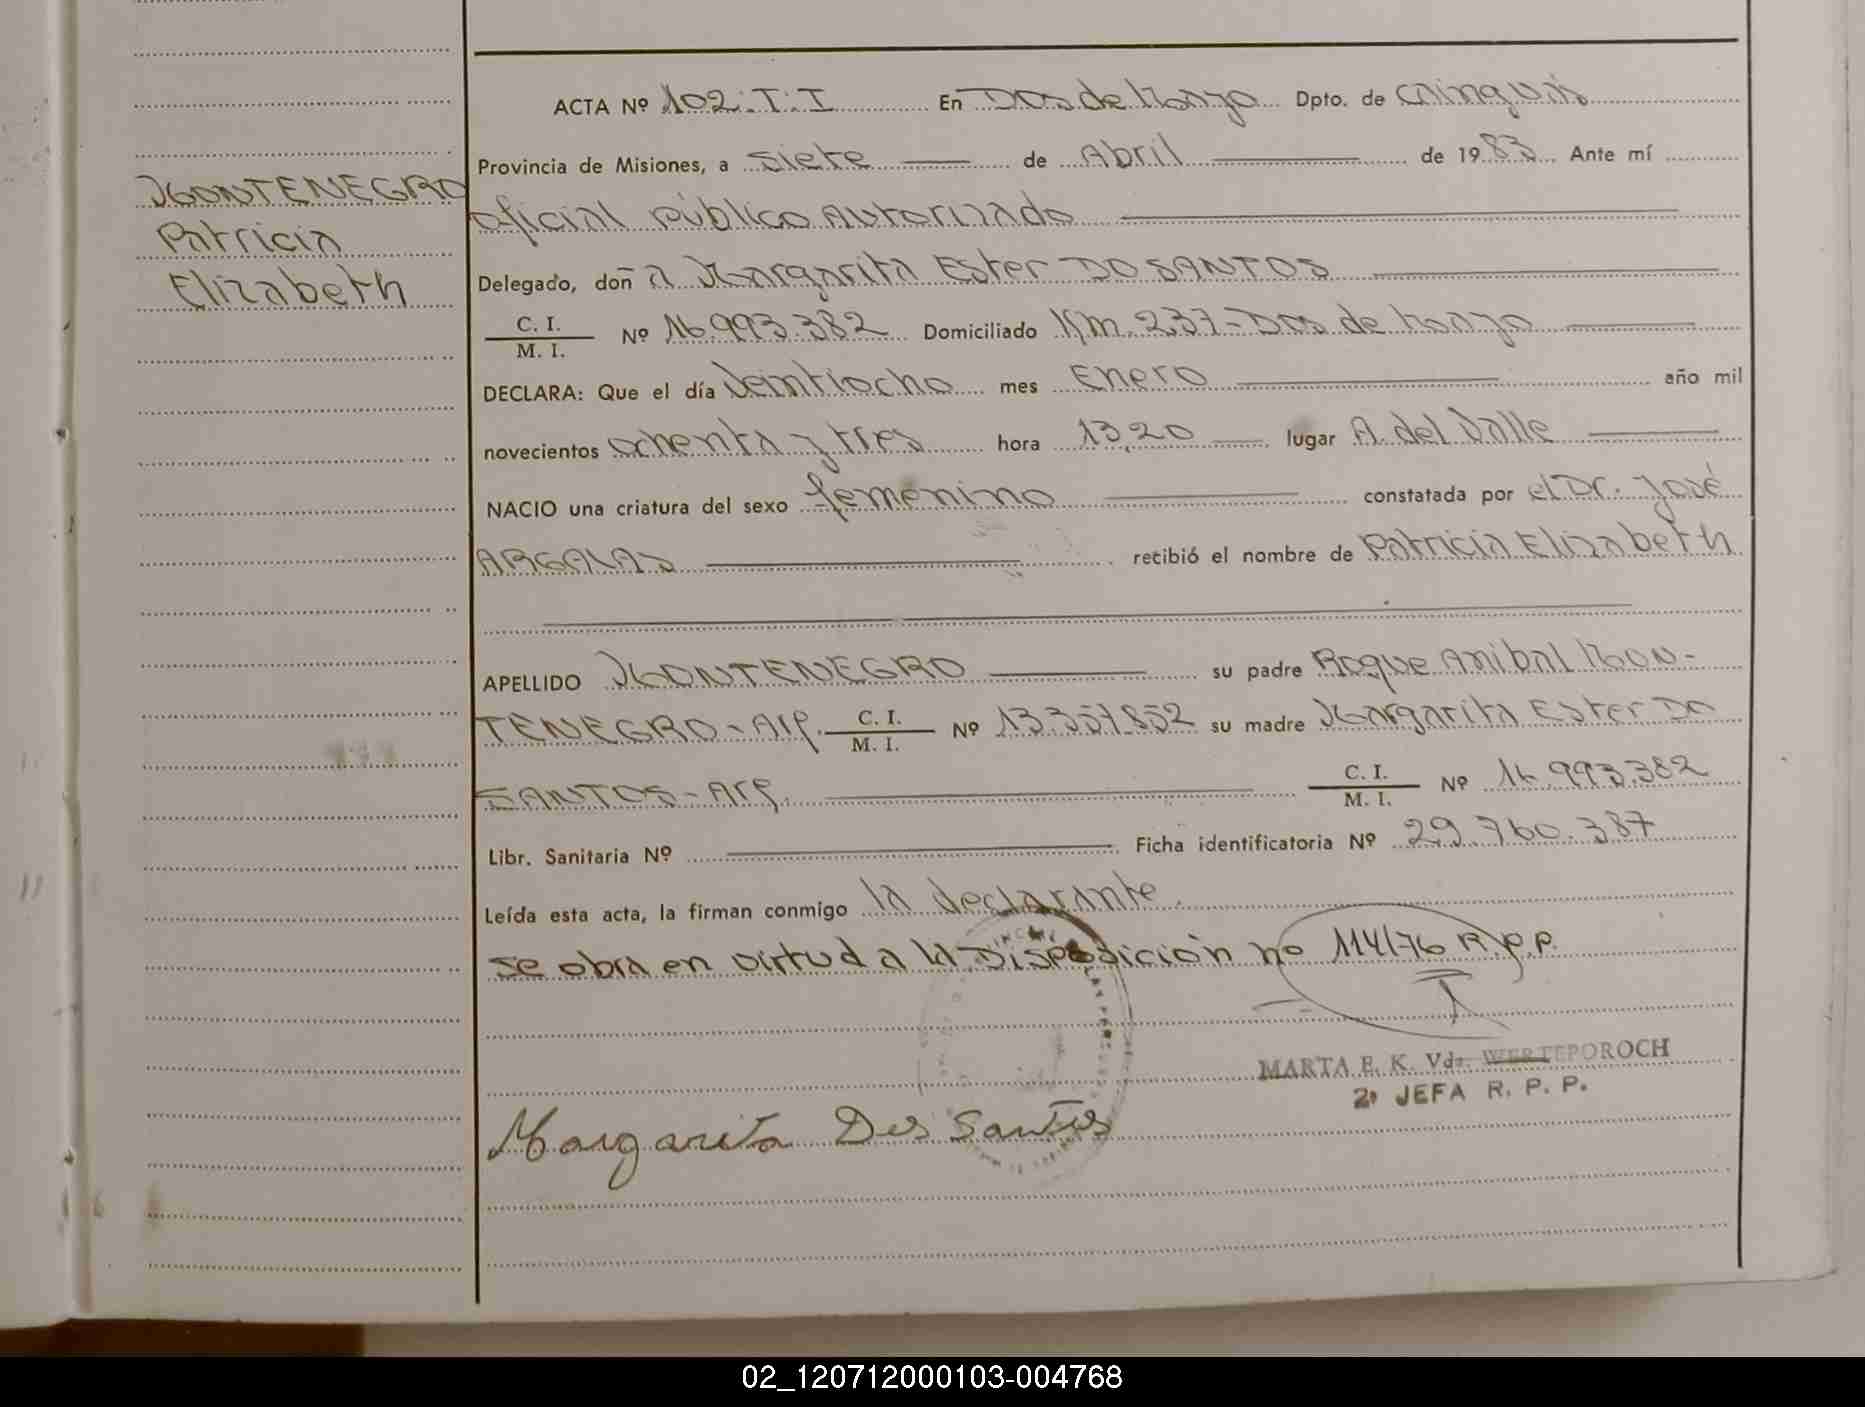 MONTENEGRO
Patricia
Elizabeth
ACTA Nº 102.T.I En Dos de Mayo Dpto. de Cainguás
Provincia de Misiones, a siete de Abril de 1983 Ante mí
oficial público Autorizado
Delegado, doña Margarita Ester DO SANTOS
C. I. / M. I. Nº 16.993.382 Domiciliado Km. 237 - Dos de Mayo
DECLARA: Que el día Veintiocho mes Enero año mil
novecientos ochenta y tres hora 13,20 lugar A. del Valle
NACIO una criatura del sexo femenino constatada por el Dr. José
ARGAÑAS recibió el nombre de Patricia Elizabeth
APELLIDO MONTENEGRO su padre Roque Anibal MON-
TENEGRO - Arg. C. I. / M. I. Nº 13.357.852 su madre Margarita Ester DO
SANTOS - Arg. C. I. / M. I. Nº 16.993.382
Libr. Sanitaria Nº Ficha identificatoria Nº 29.760.387
Leída esta acta, la firman conmigo la declarante.
se obra en virtud a la Disposición no 114/76 R.P.P.
MARTA E. K. Vda. WERTEPOROCH
2ª JEFA R. P. P.
Margarita Dos Santos
02_120712000103-004768